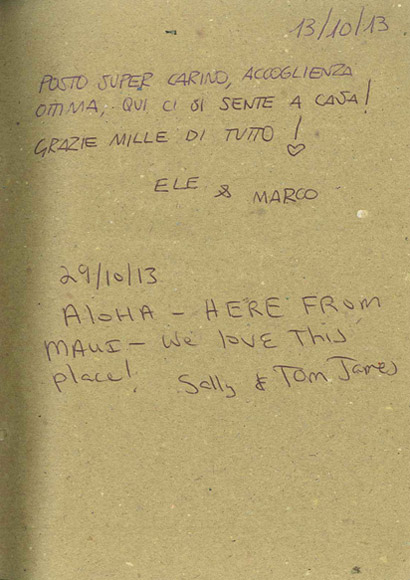 13/10/13
POSTO SUPER CARINO, ACCOGLIENZA
OTTIMA, QUI CI SI SENTE A CASA!
GRAZIE MILLE DI TUTTO!
ELE & MARCO
29/10/13
ALOHA - HERE FROM
MAUI - We love This
place! Sally & Tom James